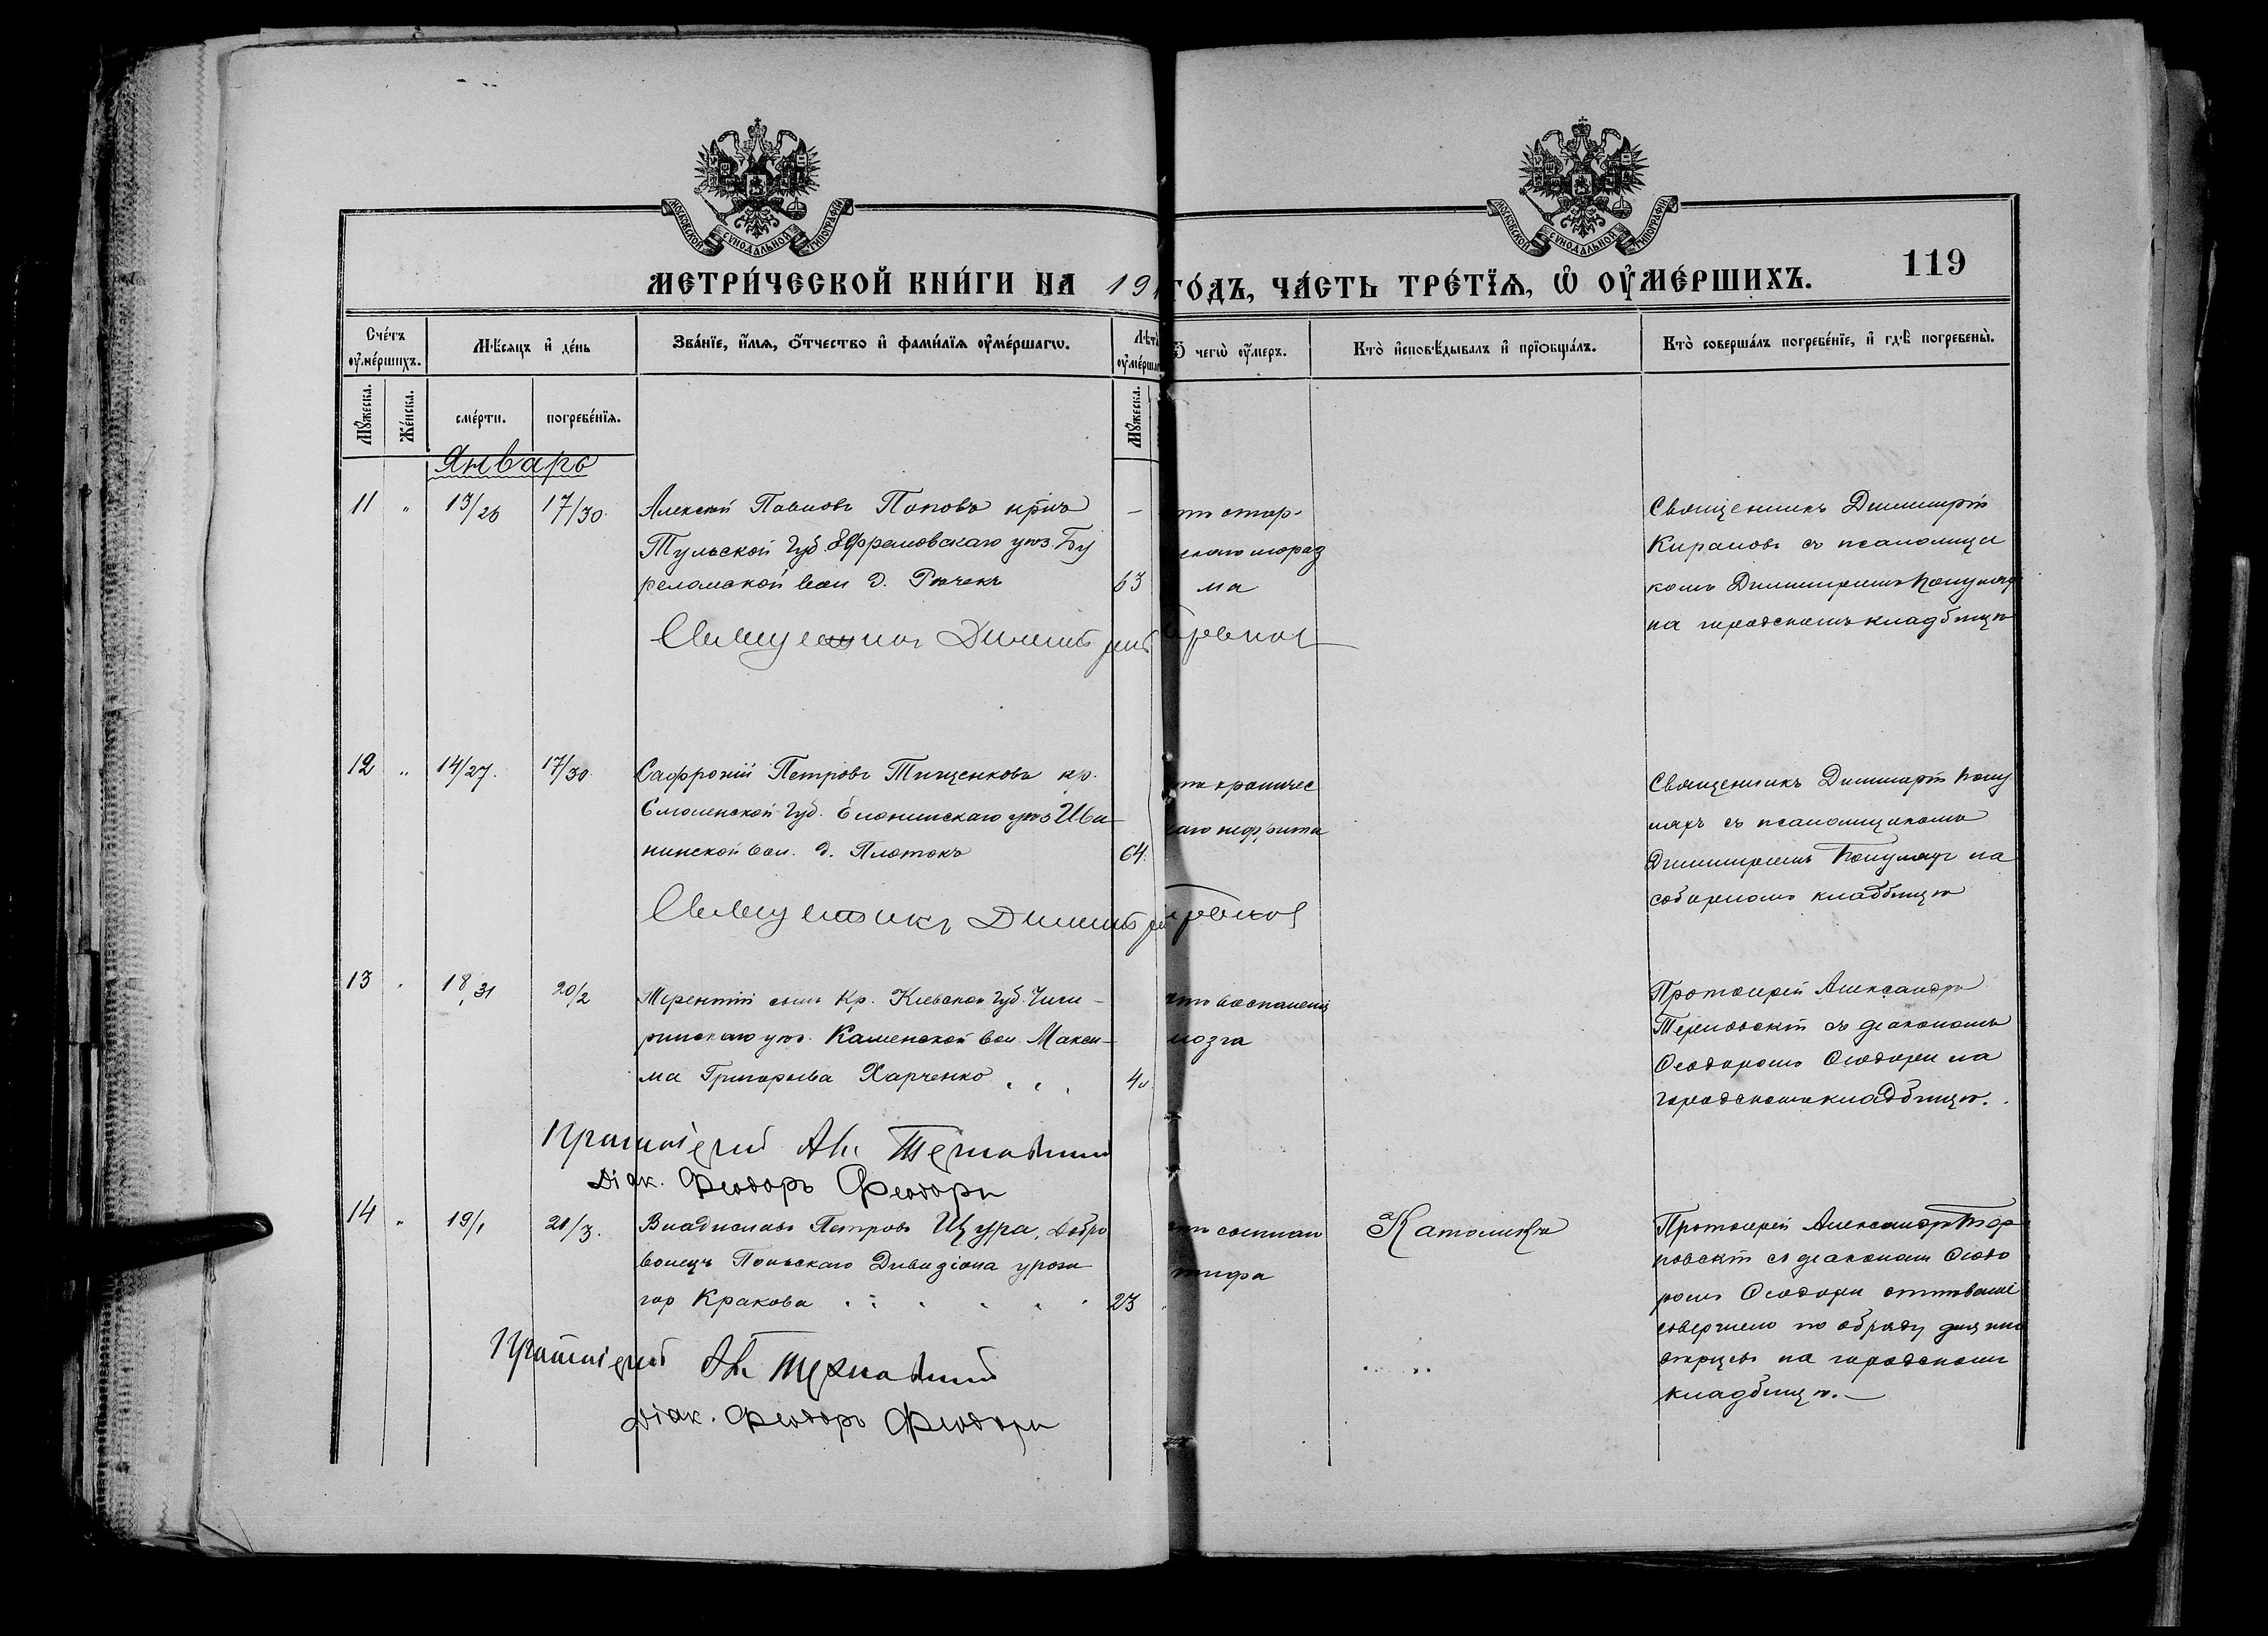 МОСКОВСКОЙ СѴНОДАЛЬНОЙ ТИПОГРАФІИ
МОСКОВСКОЙ СѴНОДАЛЬНОЙ ТИПОГРАФІИ
МЕТРИ́ЧЕСКОЙ КНИ́ГИ НА 191
ГО́ДЪ, ЧА́СТЬ ТРЕ́ТЇѦ, Ѡ ОУ҆МЕ́РШИХЪ.
119
Сче́тъ оу҆ме́ршихъ.
Мѣ́сяцъ и҆ де́нь
Зва́нїе, и҆́мя, ѻ҆́тчество и҆ фами́лїя оу҆ме́ршагѡ.
Лѣт
оу҆ме́рша
Ѿ чегѡ̀ оу҆́меръ.
Кто̀ и҆сповѣ́дывалъ и҆ прїѻбща́лъ.
Кто̀ соверша́лъ погребе́нїе, и҆ гдѣ̀ погребены̀.
Мꙋ́жеска.
Же́нска.
сме́рти.
погребе́нїя.
Мꙋ́жеска.
Январь
11 " 13/26 17/30. Алексѣй Павловъ Поповъ кр-нъ
Тульской губ. Ефремовскаго уѣз. Бу
реломской вол д. Рючекъ 63
стар-
ческаго мораз
ма
Священникъ Димитрій
съ псаломщи
комъ Димитріемъ
на городскомъ кладбищѣ
Священникъ Димитрій
12 " 14/27. 17/30. Сафроній Петровъ Тищенковъ кр.
Смоленской губ. Ельнинскаго уѣз Ива-
нинской вол. д. Плотокъ 64.
хроничес
каго нефрита
Священникъ Димитрій
съ псаломщикомъ
Димитріемъ на
соборномъ кладбищѣ
Священникъ Димитрій
13 18/31 20/2 Терентій сынъ кр. Кіевской губ. Чиги-
ринскаго уѣз. Каменской вол. Макси-
ма Григорьева Харченко
воспаленія
мозга
Протоіерей Александръ
Терновскій съ діакономъ
Ѳеодоромъ Ѳеодори на
городскомъ кладбищѣ.
Протоіерей Ал. Терновский
Діак. Феодоръ Феодори
14 " 19/1 21/3. Владиславъ Петровъ Щура, добро
волецъ Польскаго Дивизіона урож
гор Кракова 23
сыпнаго
тифа
Католикъ
Протоіерей Александръ Тер
новскій съ діакономъ Ѳеодо
ромъ Ѳеодори отпѣваніе
совершено по обряду для ино
вѣрцевъ на городскомъ
кладбищѣ.
Протоіерей Ал. Терновский
Діак. Феодоръ Феодори